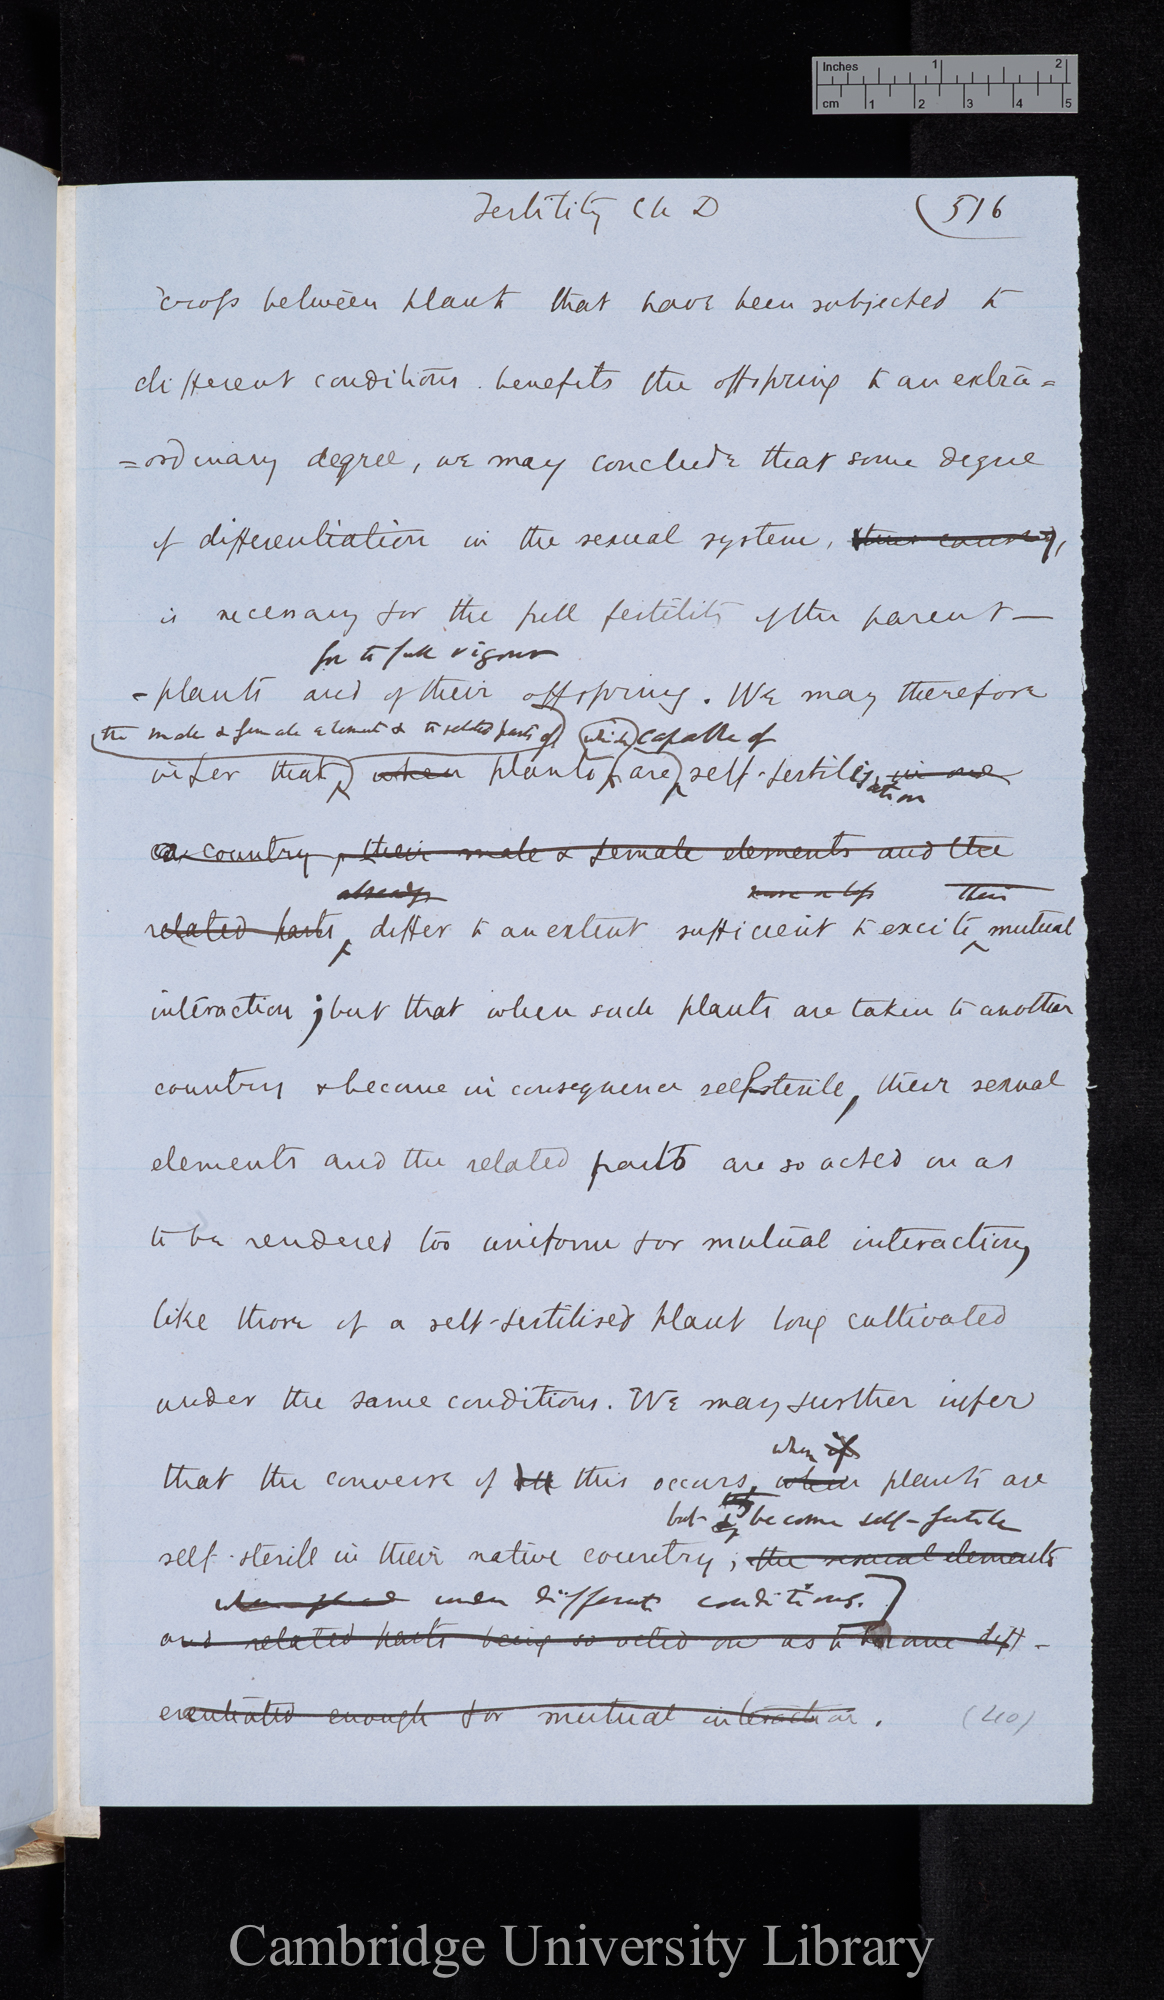 Inches 1 2
cm 1 2 3 4 5
Fertility Ch D (516
cross between plants that have been subjected to
different conditions benefits the offspring to an extra=
=ordinary degree, we may conclude that some degree
of differentiation in the sexual system,
is necessary for the full fertility of the parent-
for the full vigour
-plants and of their offspring. We may therefore
the male & female elements & the related parts of which capable of
infer that, when plants are self-fertilisation in one
country, their male & female elements and the
already more or less their
related parts, differ to an extent sufficient to excite mutual
interaction; but that when such plants are taken to another
country & become in consequence self-sterile, their sexual
elements and the related parts are so acted on as
to be rendered too uniform for mutual interaction,
like those of a self-fertilised plant long cultivated
under the same conditions. We may further infer
when if
that the converse of this occurs, when plants are
but become self-fertile
self-sterile in their native country; the sexual elements
when placed under different conditions.
and related parts being so acted on as to become diff-
erentiated enough for mutual interaction. (40)
Cambridge University Library